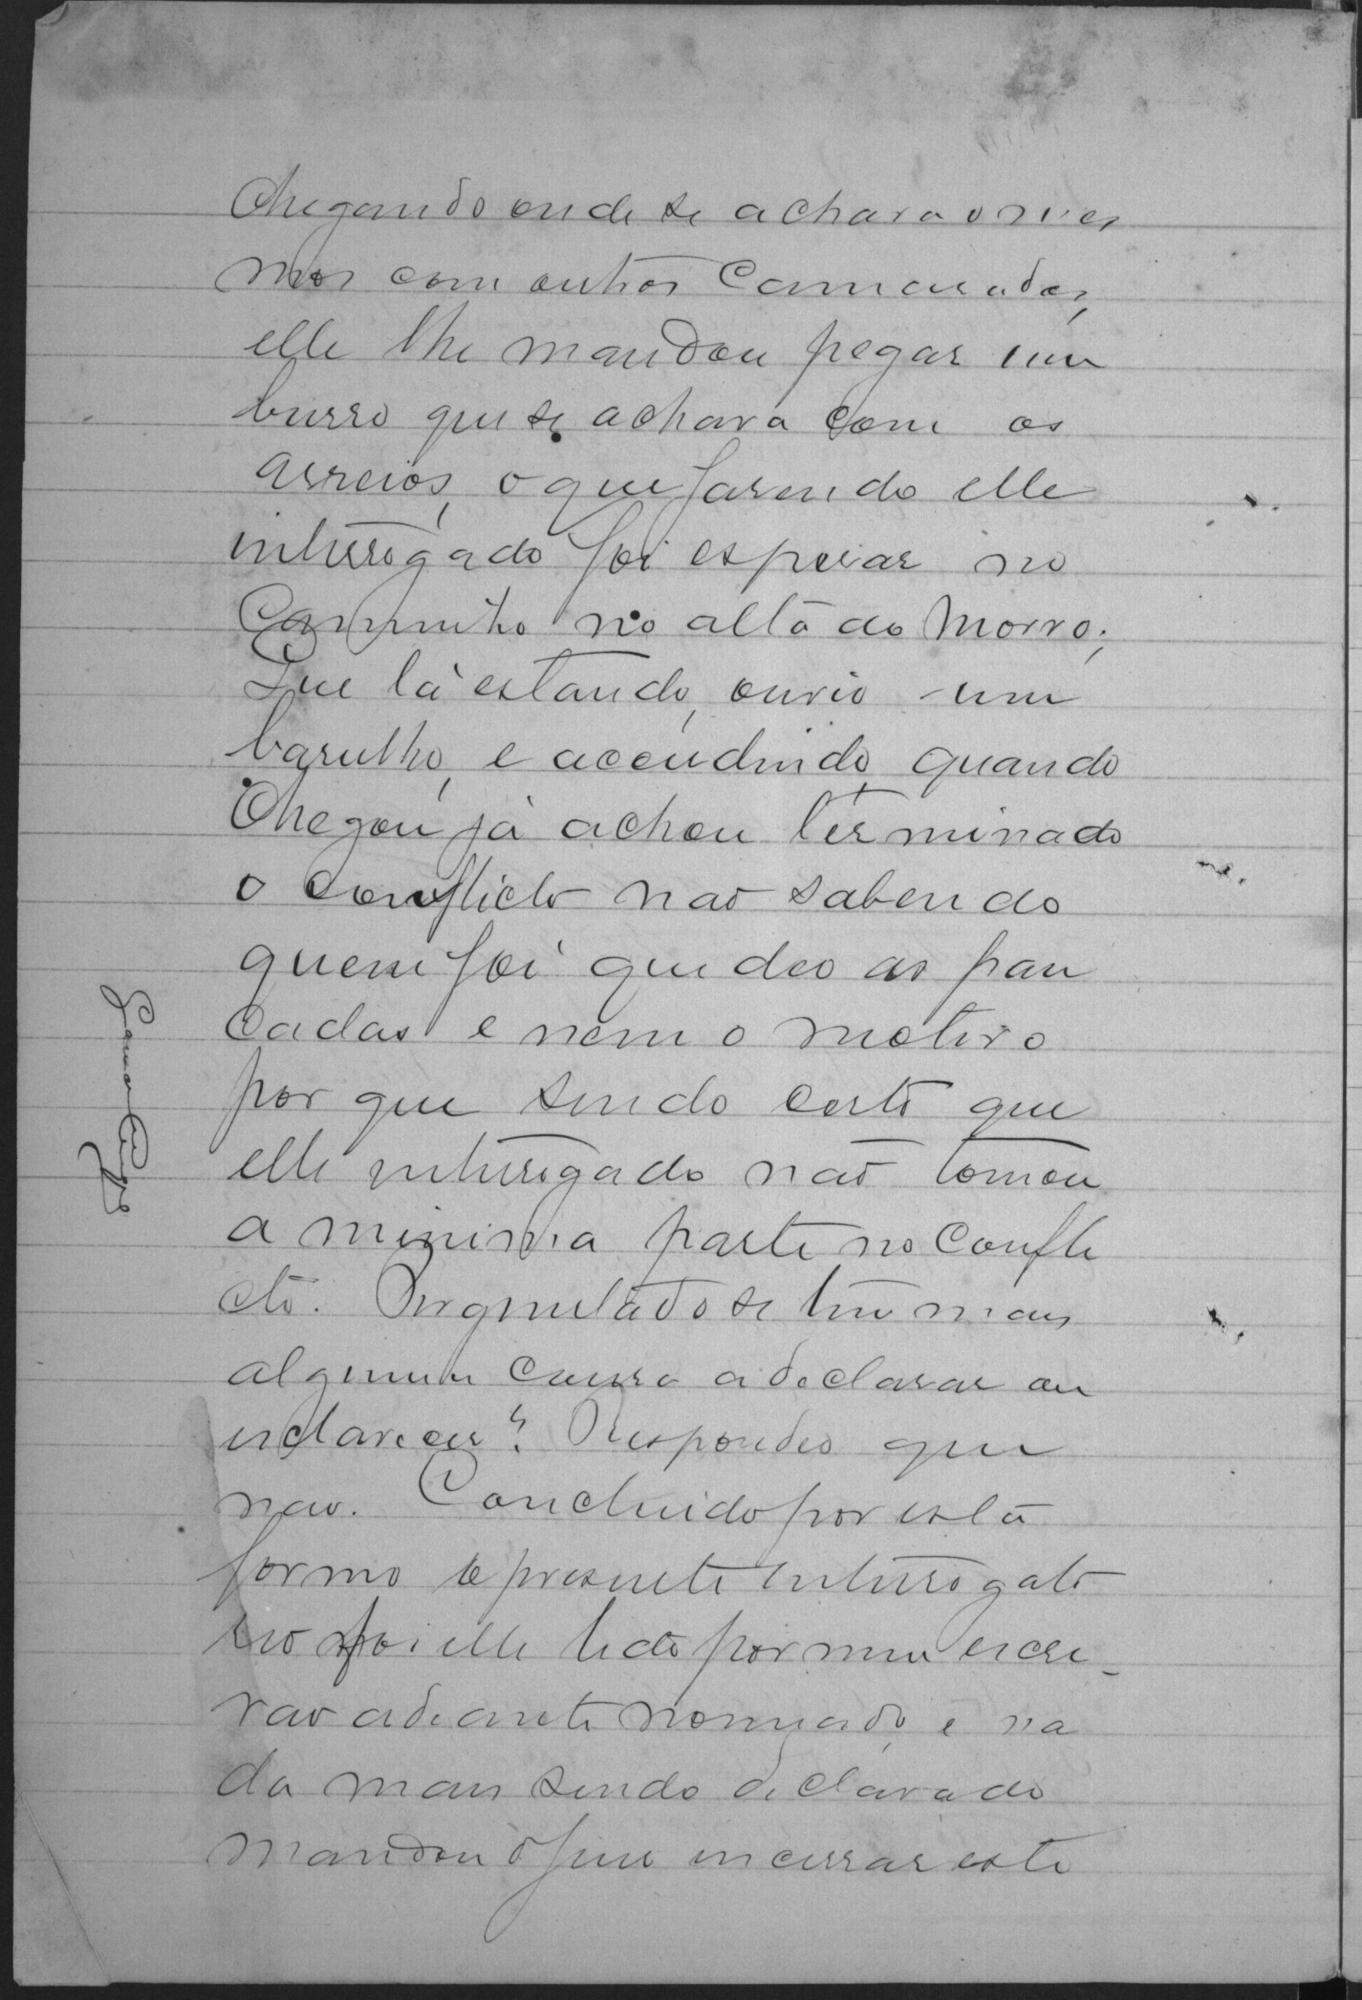 Chegando onde se achava o mes
mos com outros Camaradas,
elle lhe mandou pegar um
burro que se achava com os
arreios, o que fasendo elle
interrogado foi esperar no
Caminho no alto do Morro;
Que lá estando, ouvio um
barulho, e accudindo, quando
Chegou já achou terminado
o conflicto não sabendo
quem foi que deo as pan
cadas e nem o motivo
por que sendo certo que
elle interrogado não tomou
a minima parte no Confli
cto. Perguntado se tem mais
alguma cousa a declarar ou
esclarecer? Respondeo que
não. Concluido por esta
forma o presente interrogato
rio foi elle lido por mim escri-
vão adeante nomeado, e na
da mais sendo declarado
mandou o Juis encerrar este